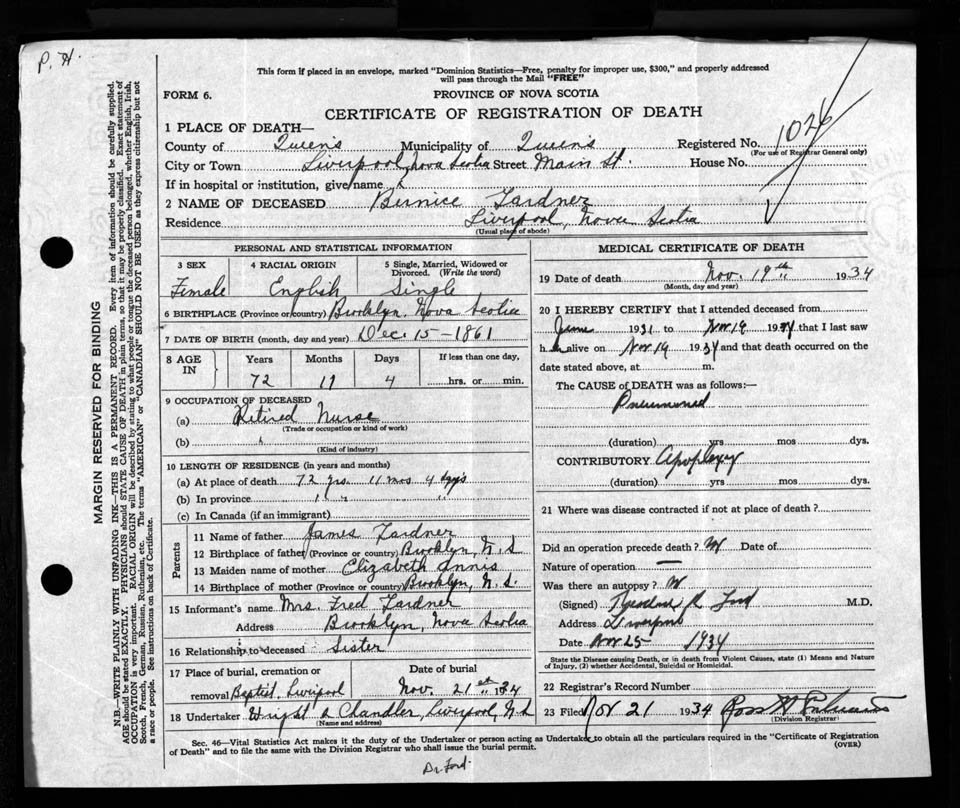 P. H.
This form if placed in an envelope, marked "Dominion Statistics—Free, penalty for improper use, $300," and properly addressed
will pass through the Mail "FREE"
FORM 6.
PROVINCE OF NOVA SCOTIA
CERTIFICATE OF REGISTRATION OF DEATH
1 PLACE OF DEATH—
County of Queens Municipality of Queens Registered No. 1026
(For use of Registrar General only)
City or Town Liverpool, Nova Scotia Street Main St. House No.
If in hospital or institution, give name
2 NAME OF DECEASED Bernice Gardner
Residence Liverpool, Nova Scotia
(Usual place of abode)
PERSONAL AND STATISTICAL INFORMATION
3 SEX 4 RACIAL ORIGIN 5 Single, Married, Widowed or
Divorced. (Write the word)
Female English Single
6 BIRTHPLACE (Province or country) Brooklyn, Nova Scotia
7 DATE OF BIRTH (month, day and year) Dec 15 - 1861
8 AGE IN Years Months Days If less than one day,
72 11 4 hrs. or min.
9 OCCUPATION OF DECEASED
(a) Retired Nurse
(Trade or occupation or kind of work)
(b)
(Kind of industry)
10 LENGTH OF RESIDENCE (in years and months)
(a) At place of death 72 yrs. 11 mos 4 dys
(b) In province " " "
(c) In Canada (if an immigrant)
Parents
11 Name of father James Gardner
12 Birthplace of father (Province or country) Brooklyn, N.S
13 Maiden name of mother Elizabeth Annis
14 Birthplace of mother (Province or country) Brooklyn, N.S.
15 Informant's name Mrs. Fred Gardner
Address Brooklyn, Nova Scotia
16 Relationship to deceased Sister
17 Place of burial, cremation or Date of burial
removal Baptist, Liverpool Nov. 21st 1934
18 Undertaker Wright & Chandler, Liverpool, N.S
(Name and address)
MEDICAL CERTIFICATE OF DEATH
19 Date of death Nov. 19th 1934
(Month, day and year)
20 I HEREBY CERTIFY that I attended deceased from
June 1931 to Nov 19 1934 that I last saw
her alive on Nov 19 1934 and that death occurred on the
date stated above, at m.
The CAUSE of DEATH was as follows:—
(duration) yrs mos dys.
CONTRIBUTORY Apoplexy
(duration) yrs mos dys.
21 Where was disease contracted if not at place of death?
Did an operation precede death? Date of
Nature of operation —
Was there an autopsy?
(Signed) Theodore R Ford M.D.
Address Liverpool
Date Nov 25 1934
State the Disease causing Death, or in death from Violent Causes, state (1) Means and Nature
of Injury, (2) whether Accidental, Suicidal or Homicidal.
22 Registrar's Record Number
23 Filed Nov 21 1934
(Division Registrar)
Sec. 46—Vital Statistics Act makes it the duty of the Undertaker or person acting as Undertaker to obtain all the particulars required in the "Certificate of Registration
of Death" and to file the same with the Division Registrar who shall issue the burial permit.
(OVER)
Dr Ford.
MARGIN RESERVED FOR BINDING
N.B.—WRITE PLAINLY WITH UNFADING INK—THIS IS A PERMANENT RECORD. Every item of information should be carefully supplied.
AGE should be stated EXACTLY. PHYSICIANS should STATE CAUSE OF DEATH in plain terms, so that it may be properly classified. Exact statement of
OCCUPATION is very important. RACIAL ORIGIN will be described by stating to what people or tongue the deceased person belonged, whether English, Irish,
Scotch, French, German, Russian, Ruthenian, etc. The terms "AMERICAN" or "CANADIAN" SHOULD NOT BE USED as they express citizenship but not
a race or people. See instructions on back of Certificate.